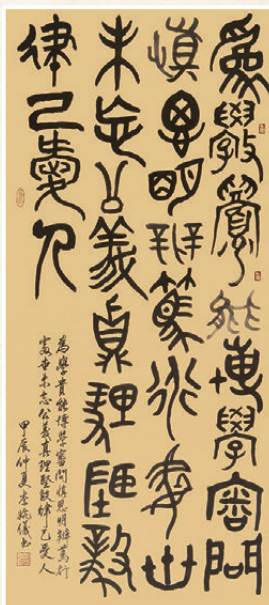 為學貴能博學審問
慎思明辨篤行處世
未忘公義真理堅毅
律己愛人
為學貴能博學審問慎思明辨篤行
處世未忘公義真理堅毅律己愛人
甲辰仲夏李儀書